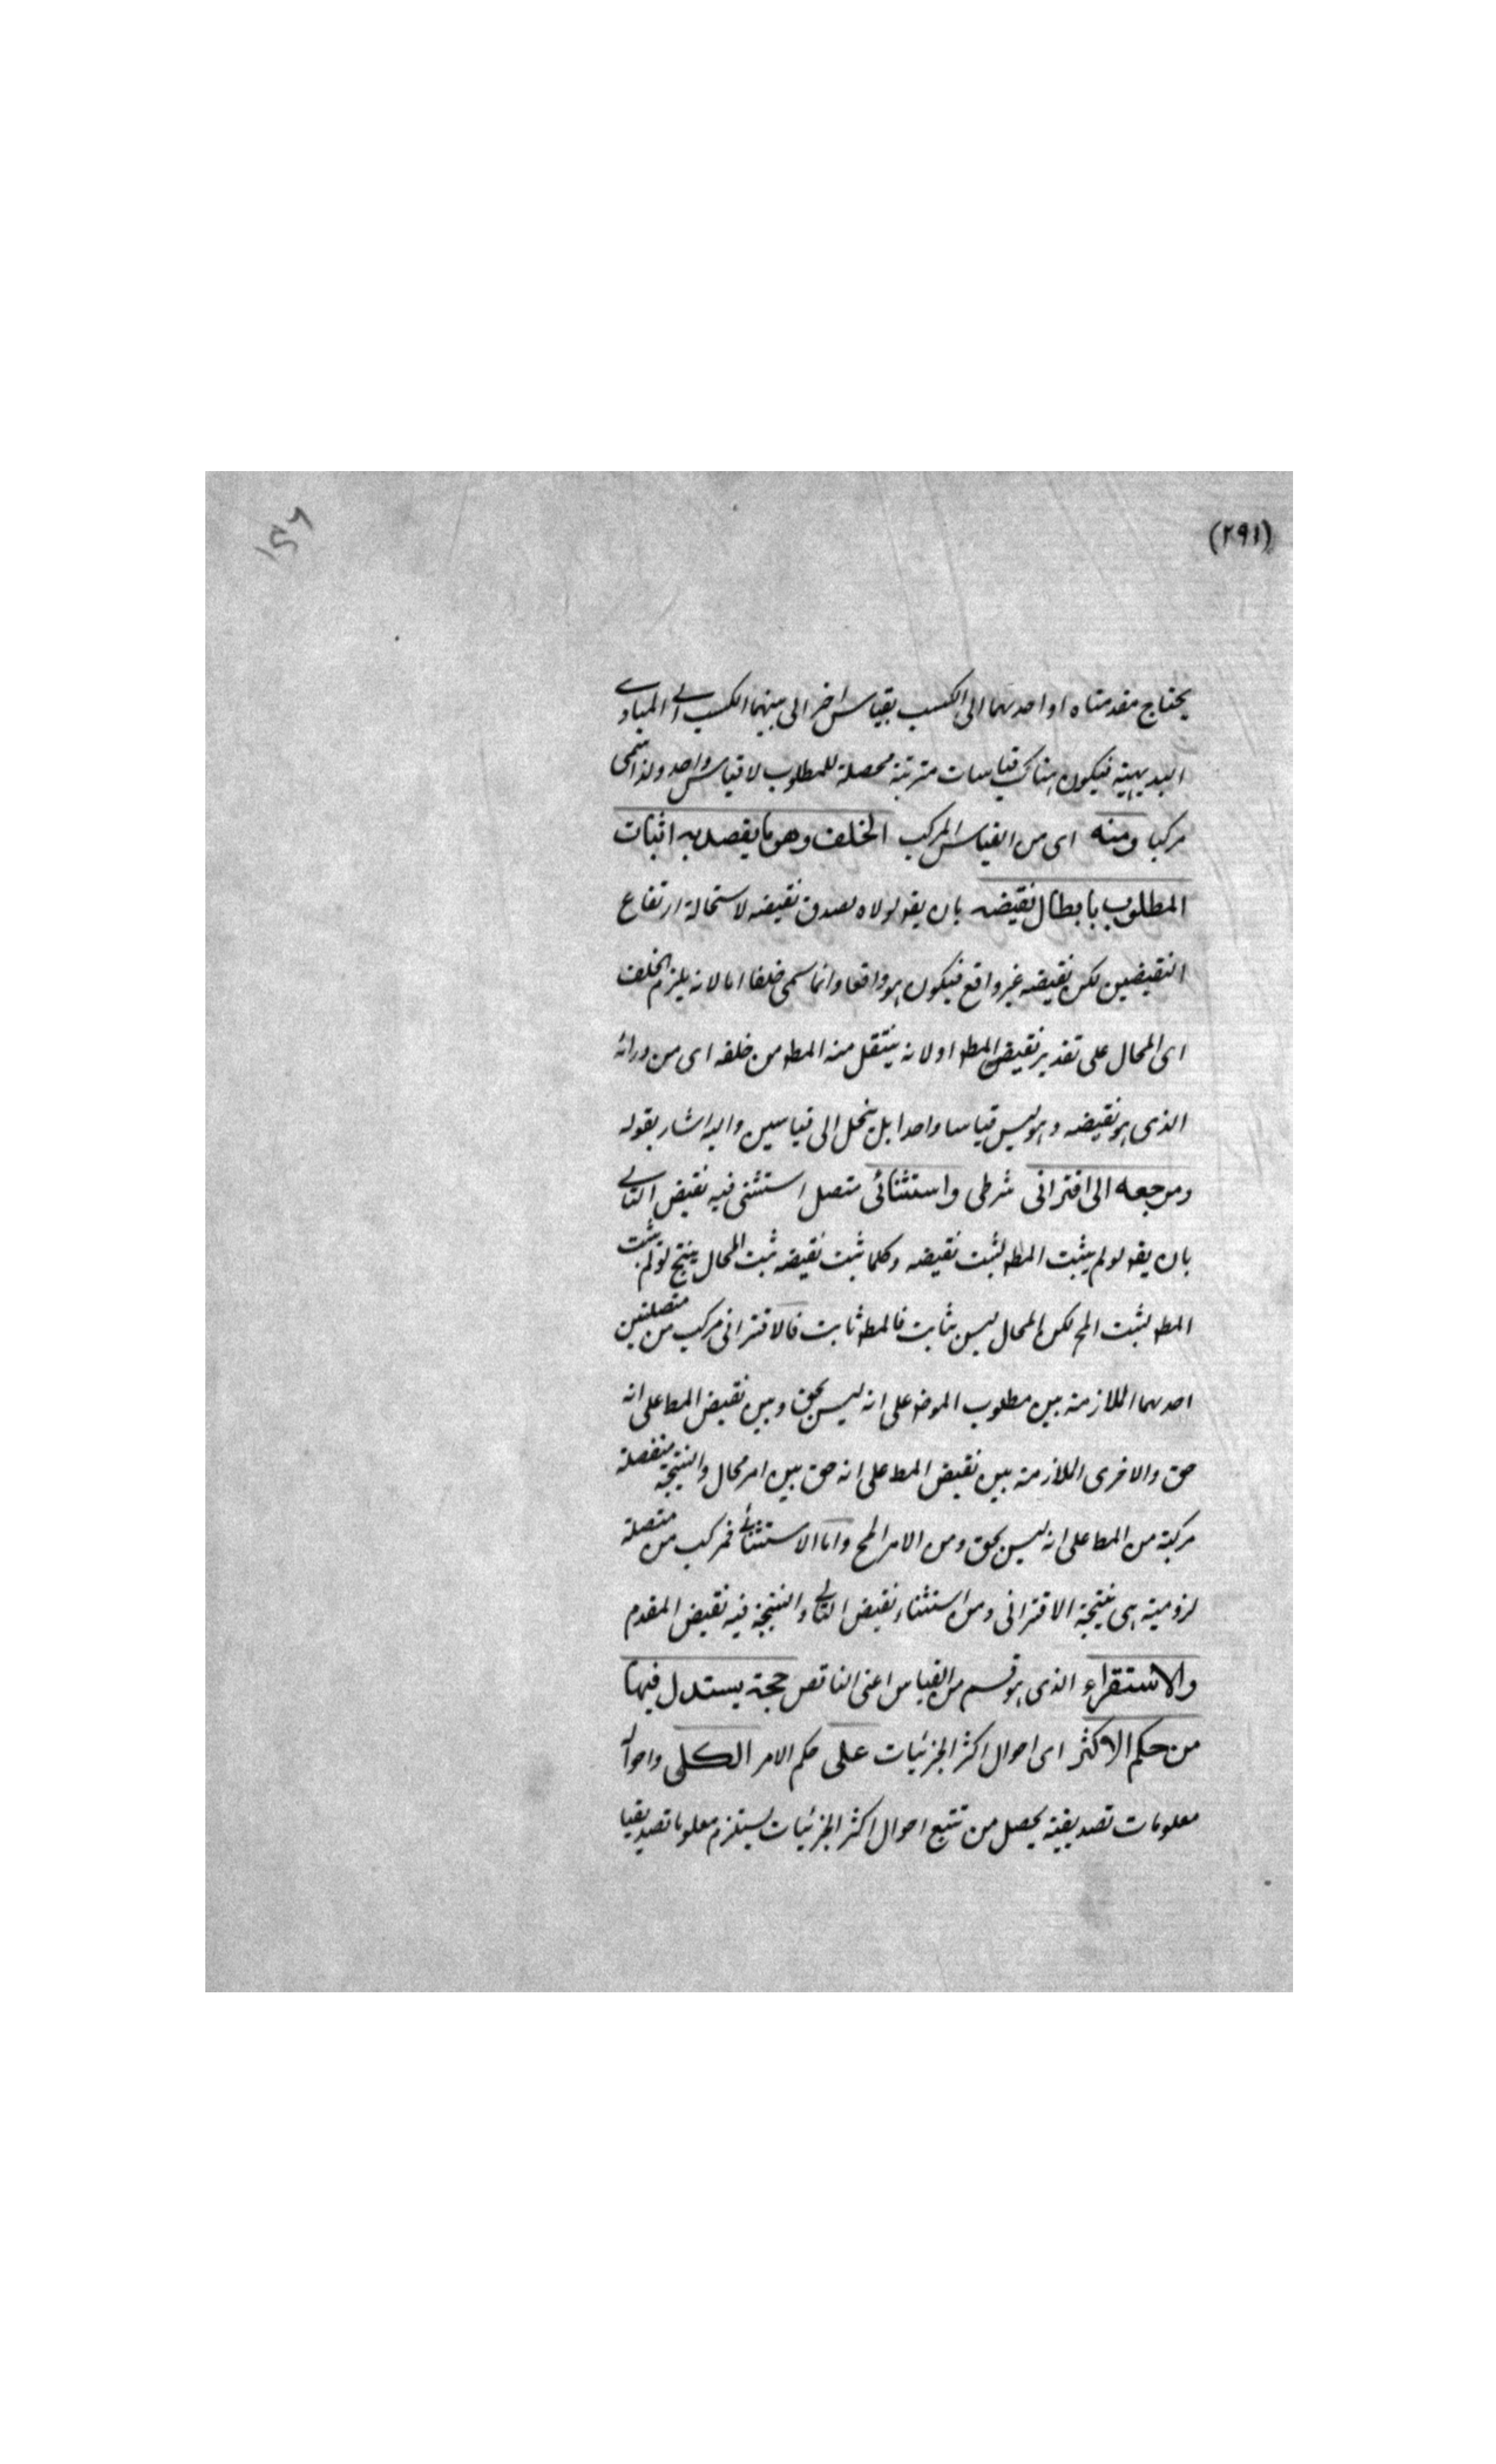 (٢٩١)
١٤٦
يحتاج مقدمتاه او احدهما الى الكسب بقياس اخر الى ينتهى الكسب الى المبادى
البديهية فيكون هناك قياسات مترتبة محصلة للمطلوب لا قياس واحد ولذا سمى
مركبا ومنه اى من القياس المركب الخلف وهو ما يقصد به اثبات
المطلوب بابطال نقيضه بان يقو لولاه لصدق نقيضه لاستحالة ارتفاع
النقيضين لكن نقيضه غير واقع فيكون هو واقعا وانما سمى خلفا اما لانه يلزم الخلف
اى المحال على تقدير نقيض المط او لانه ينتقل منه المط من خلفه اى من ورائه
الذى هو نقيضه وهو ليس قياسا واحدا بل ينحل الى قياسين واليه اشار بقوله
ومرجعه الى اقترانى شرطى واستثنائى متصل استثنى فيه نقيض التالى
بان يقو لو لم يثبت المط لثبت نقيضه وكلما ثبت نقيضه ثبت المحال ينتج لو لم يثبت
المط لثبت المح لكن المحال ليس بثابت فالمط ثابت فالاقترانى مركب من متصلتين
احدهما الملازمة بين مطلوب الموضو على انه ليس بحق وبين نقيض المط على انه
حق والاخرى الملازمة بين نقيض المط على انه حق بين امر محال والنتيجة متصلة
مركبة من المط على انه ليس بحق ومن الامر المح واما الاستثنائى فمركب من متصلة
لزومية هى نتيجة الاقترانى ومن استثناء نقيض التالى والنتيجة فيه نقيض المقدم
والاستقراء الذى هو قسم من القياس اعنى الناقص حجة يستدل فيها
من حكم الاكثر اى احوال اكثر الجزئيات على حكم الامر الكلى واحواله
معلومات تصديقية يحصل من تتبع احوال اكثر الجزئيات يستلزم معلوما تصديقيا